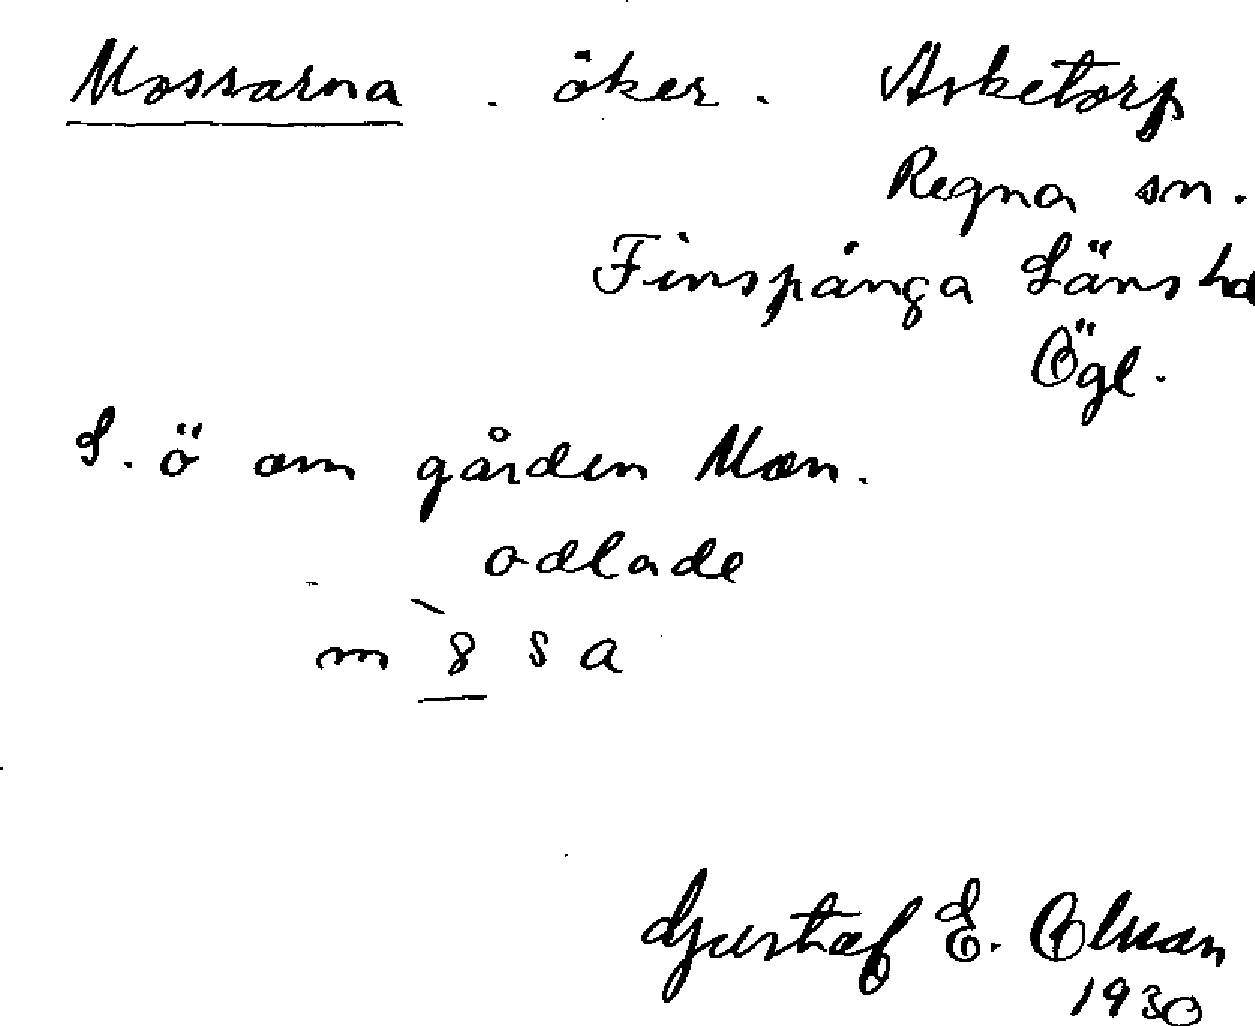 Mossarna . åker . Asketorp
Regna sn.
Finspånga Läns hd
Ögl.
S. ö om gården Mon.
odlade
m 8 s a
Gustaf E. Olsson
1930